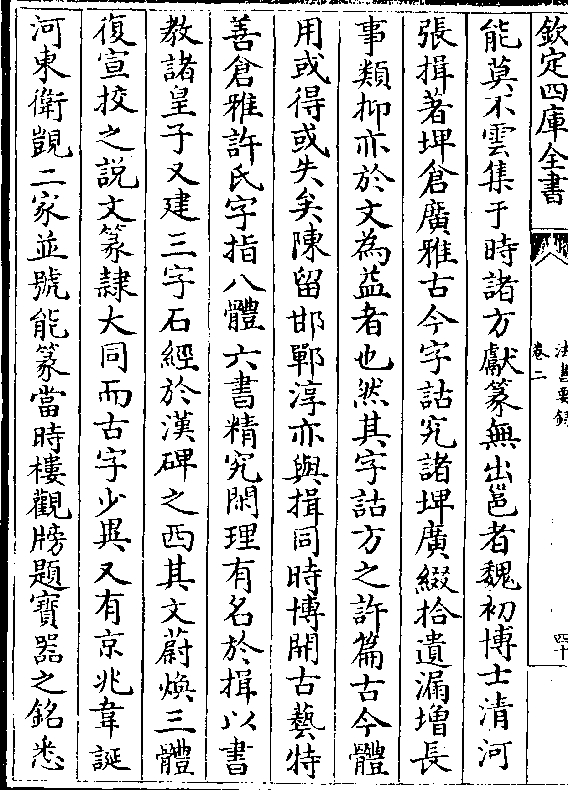 欽定四庫全書
法書要錄
卷二
四十
能莫不雲集于時諸方獻篆無出邕者魏初博士清河
張揖著埤倉廣雅古今字詁究諸埤廣綴拾遺漏增長
事類抑亦於文為益者也然其字詁方之許篇古今體
用或得或失矣陳留邯鄲淳亦與揖同時博開古藝特
善倉雅許氏字指八體六書精究閑理有名於揖以書
教諸皇子又建三字石經於漢碑之西其文蔚煥三體
復宣挍之說文篆隸大同而古字少異又有京兆韋誕
河東衛覬二家並號能篆當時樓觀牓題寶器之銘悉